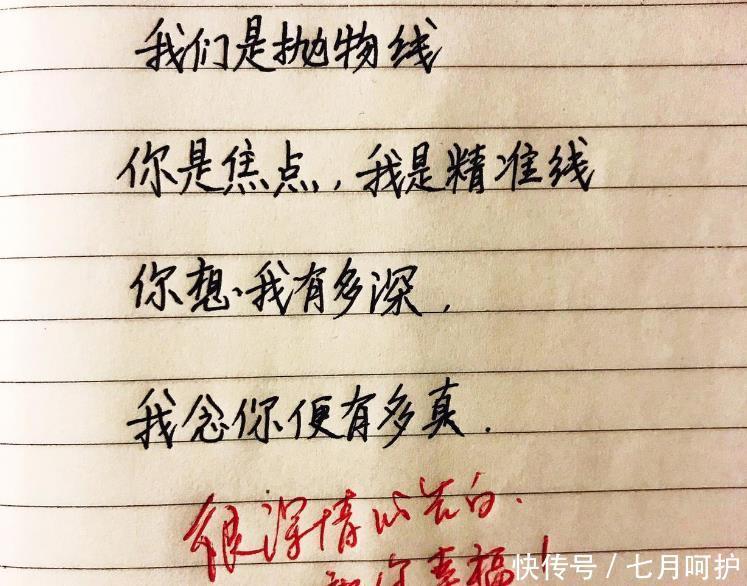 我们是抛物线
你是焦点,我是精准线
你想我有多深,
我念你便有多真.
很深情的告白.
祝你幸福!
快传号/七月呵护